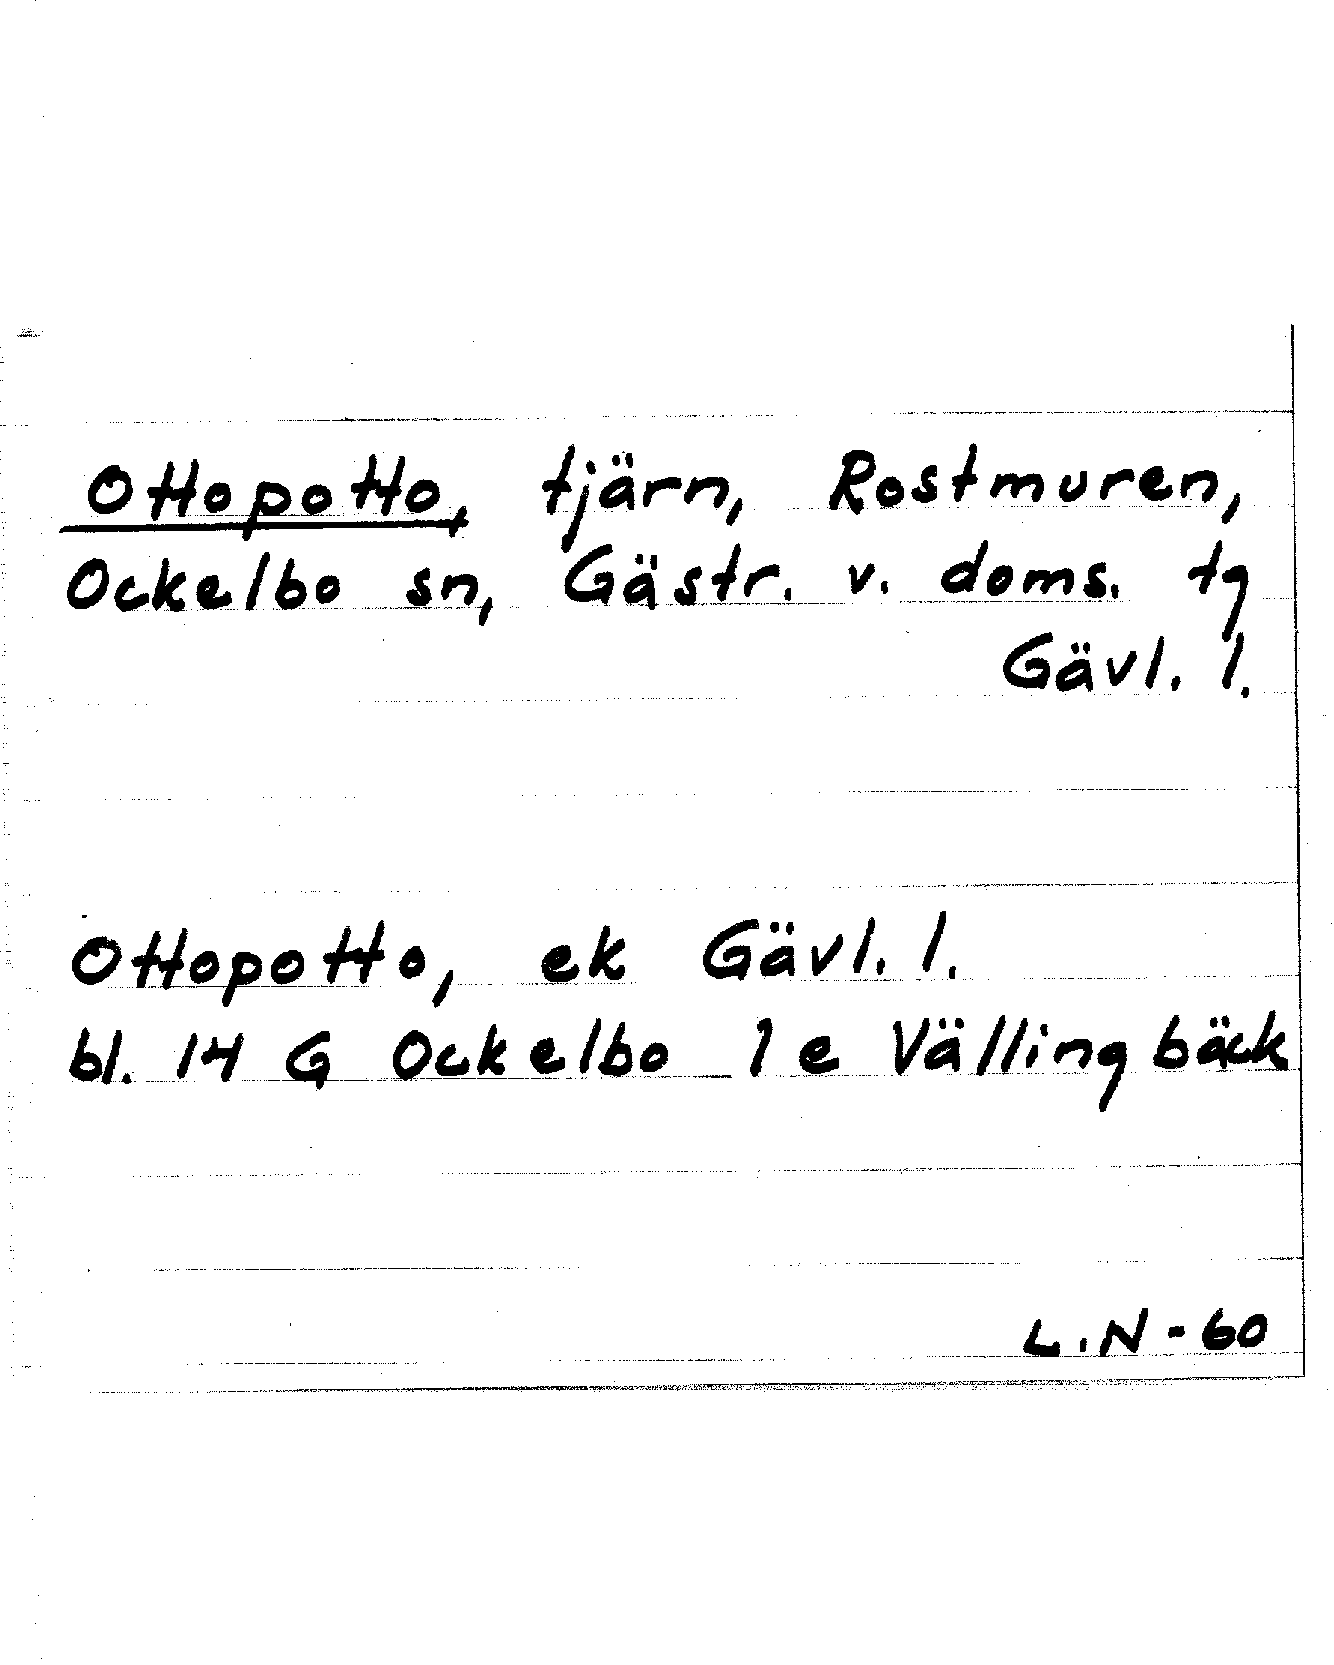 Ottopotto, tjärn, Rostmuren,
Ockelbo sn, Gästr. v. doms. tg
Gävl. l.
Ottopotto, ek Gävl. l.
bl. 14 G Ockelbo 1 e Vällingbäck
L.N-60